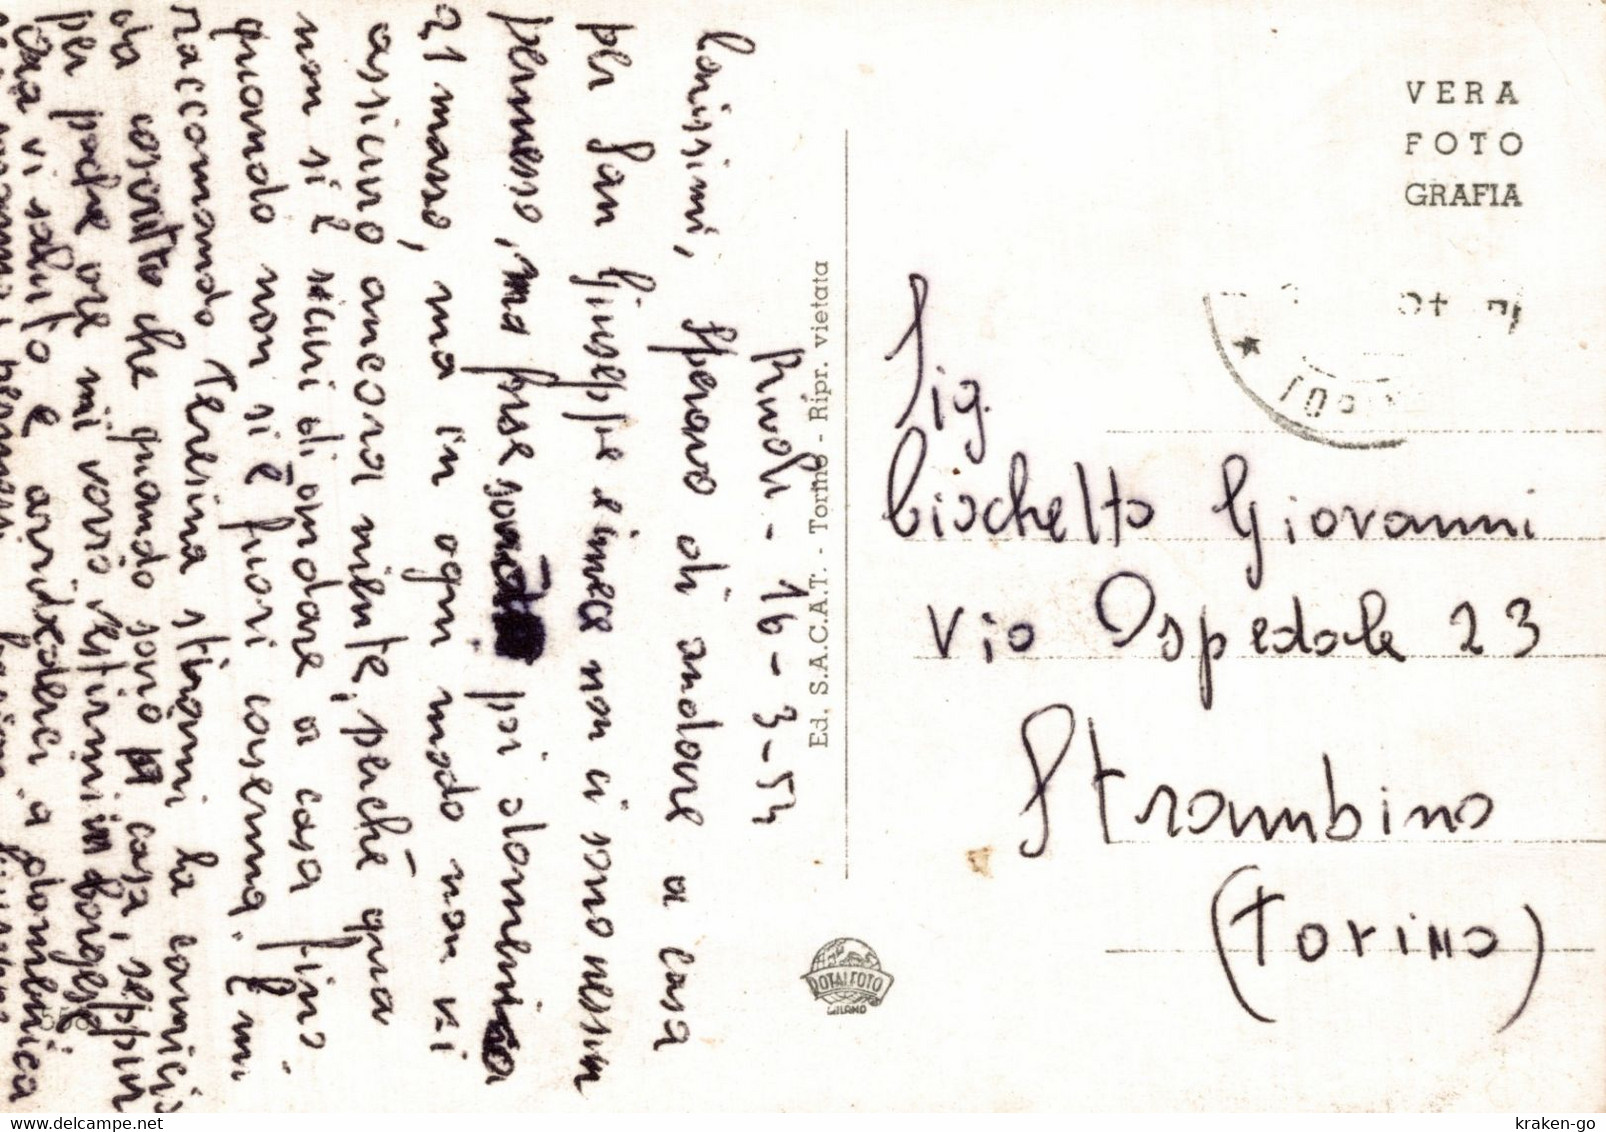 Rivoli - 16-3-54
Carissimi, Speravo di andare a casa
per San Giuseppe e invece non ci sono nessun
permesso, ma forse poi domenica
21 marzo, ma in ogni modo non vi
assicuro ancora niente, perchè qua
non si è sicuri di andare a casa fin?
quando non si è fuori caserma. E mi
raccomando Teresina stirami la camicia
da coscritto che quando sarò a casa, seppur
per poche ore mi vorrò vestirmi in borgese
Ora vi saluto e arrivederci a domenica
VERA
FOTO
GRAFIA
Sig.
Ciochetto Giovanni
Via Ospedale 23
Strambino
(Torino)
Ed. S.A.C.A.T. - Torino - Ripr. vietata
ROTALFOTO
MILANO
kraken-go